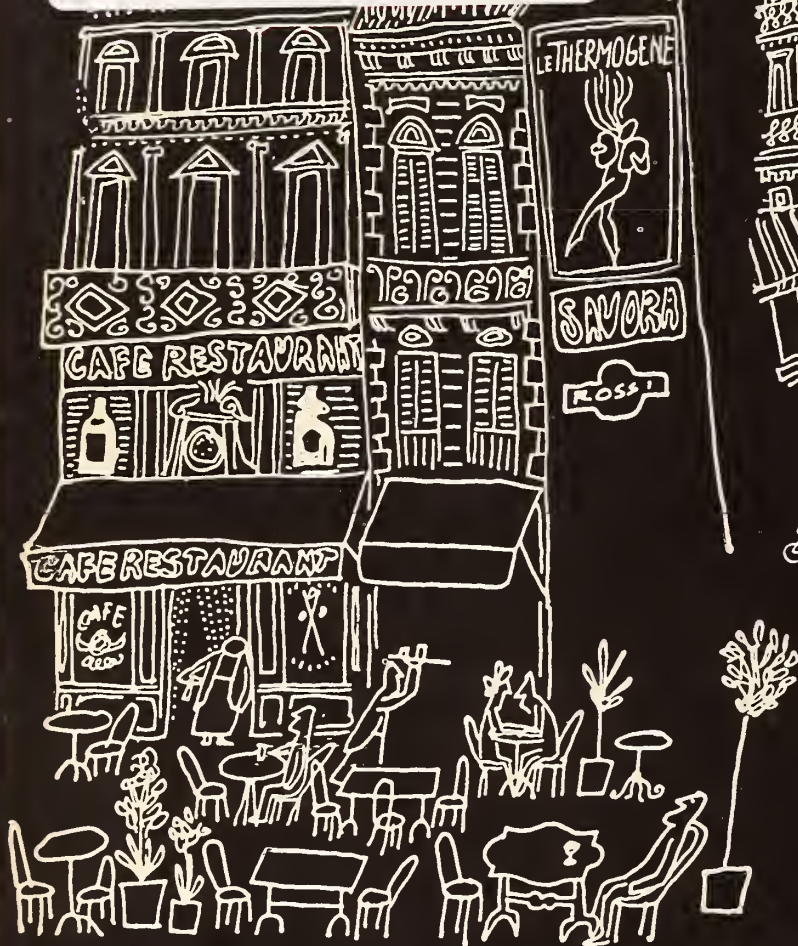 LE THERMOGENE
SAVORA
ROSSI
CAFE RESTAURANT
CAFE RESTAURANT
CAFE